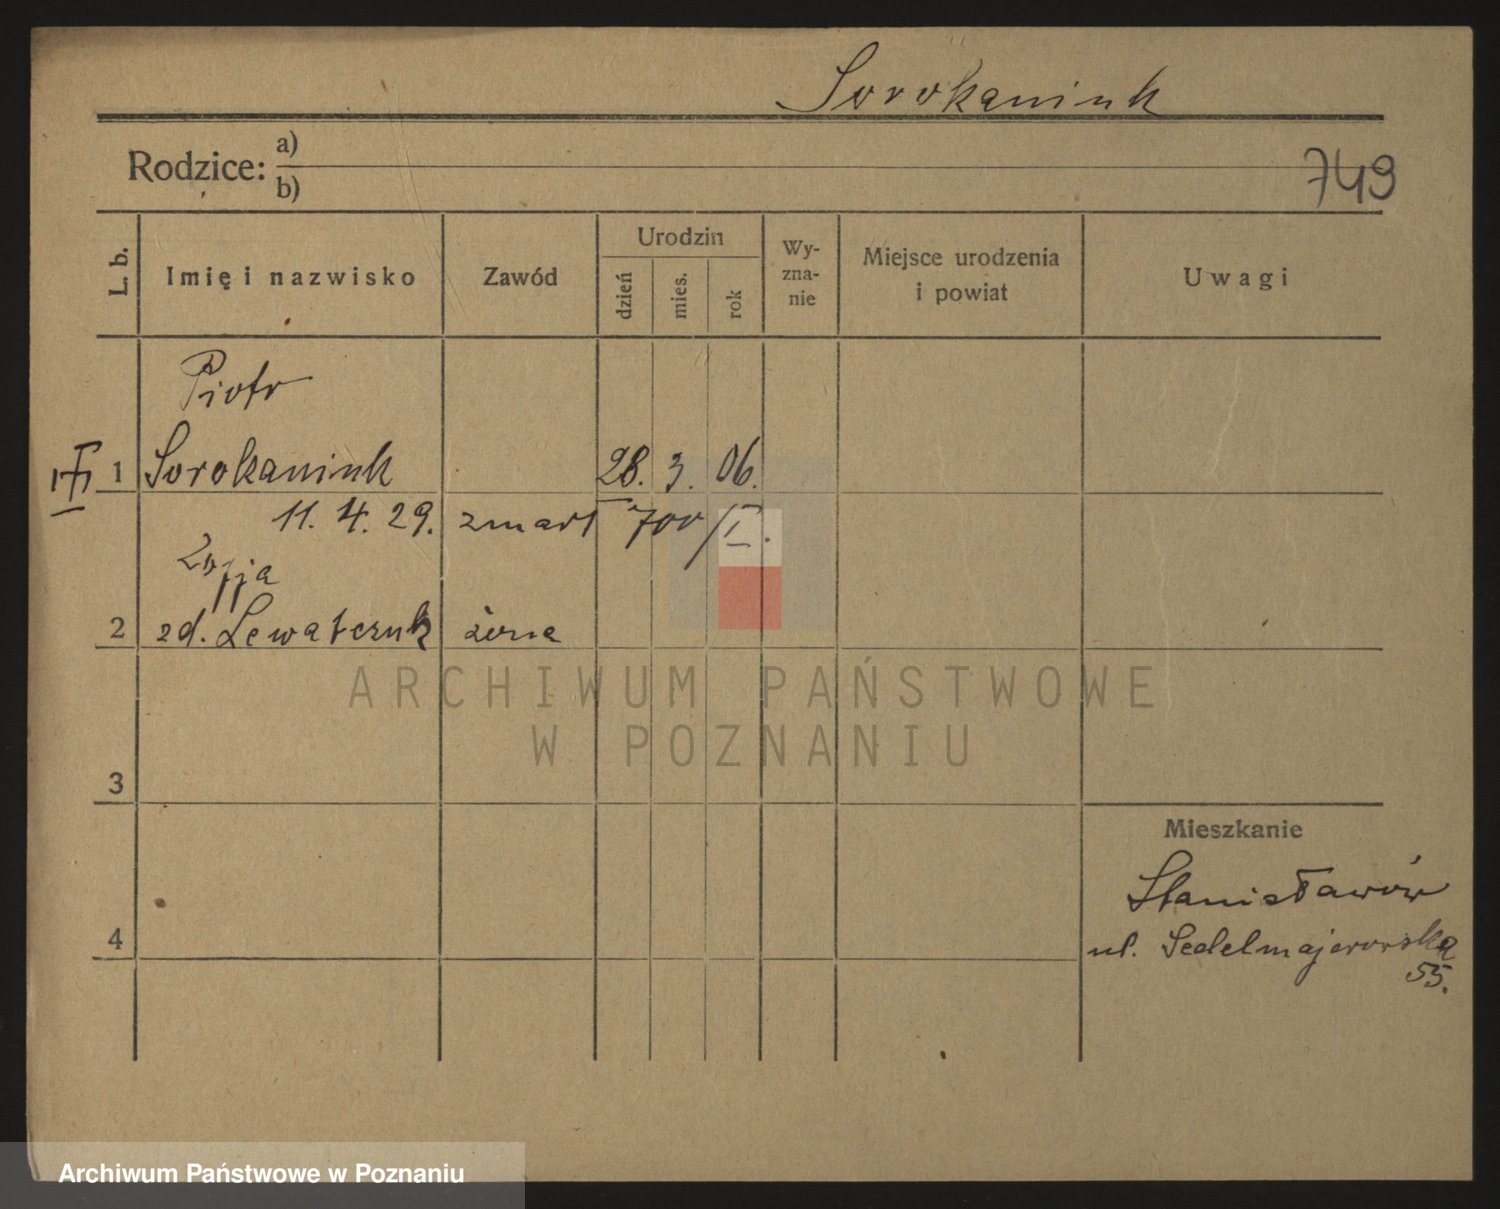 Sorokaniuk
Rodzice: a)
b)
749
L. b.
Imię i nazwisko
Zawód
Urodzin
dzień
mies.
rok
Wy-
zna-
nie
Miejsce urodzenia
i powiat
Uwagi
Piotr
1 Sorokaniuk 28. 3. 06.
11. 4. 29. zmarł 700/I.
Zofja
2 zd. Lewatczuk żona
ARCHIWUM PAŃSTWOWE
W POZNANIU
3
Mieszkanie
Stanisławów
4
ul. Sedelmajerowska
55.
Archiwum Państwowe w Poznaniu